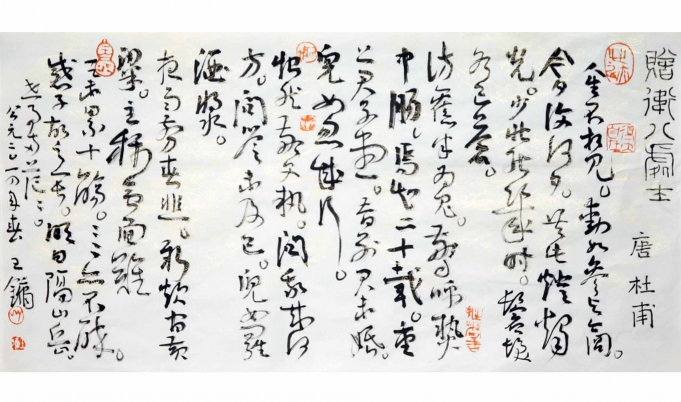 贈衛八處士
唐 杜甫
人生不相見。動如參與商。
今夕復何夕。共此燈燭
光。少壯能幾時。鬢髮
各已蒼。
訪舊半為鬼。驚呼熱
中腸。焉知二十載。重
上君子堂。昔別君未婚。
兒女忽成行。
怡然敬父執。問我來何
方。問答未及已。兒女羅
酒漿。
夜雨剪春韭。新炊間黃
粱。主稱會面難。
一舉累十觴。〻〻亦不醉。
感子故意長。明日隔山岳。
世事兩茫〻。
公元二〇一 年春 王鏞